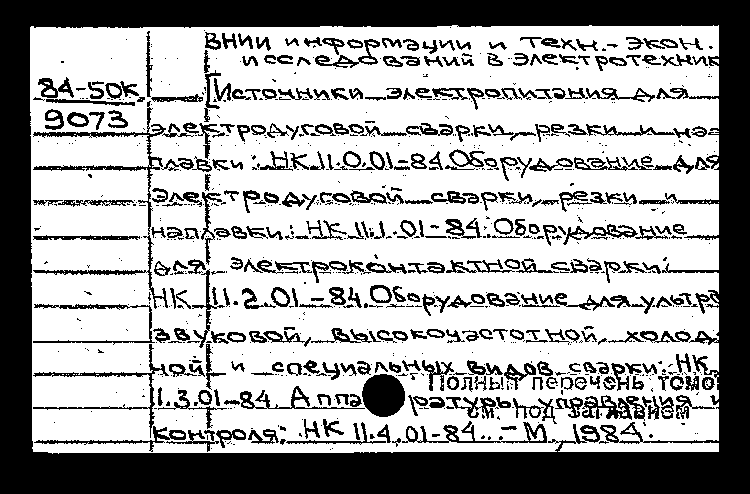 ВНИИ информации и техн.- экон.
исследований в электротехник
84-50к
9073
[Источники электропитания для
электродуговой сварки, резки и нап
плавки: НК 11.0.01-84. Оборудование для
электродуговой сварки, резки и
наплавки: НК 11.1.01-84. Оборудование
для электроконтактной сварки:
НК 11.2.01-84. Оборудование для ультра
звуковой, высокочастотной, холод
ной и специальных видов сварки: НК
Полный перечень томо
11.3.01-84. Аппаратуры управления и
см. под заглавием
контроля: НК 11.4.01-84...- М., 1984.